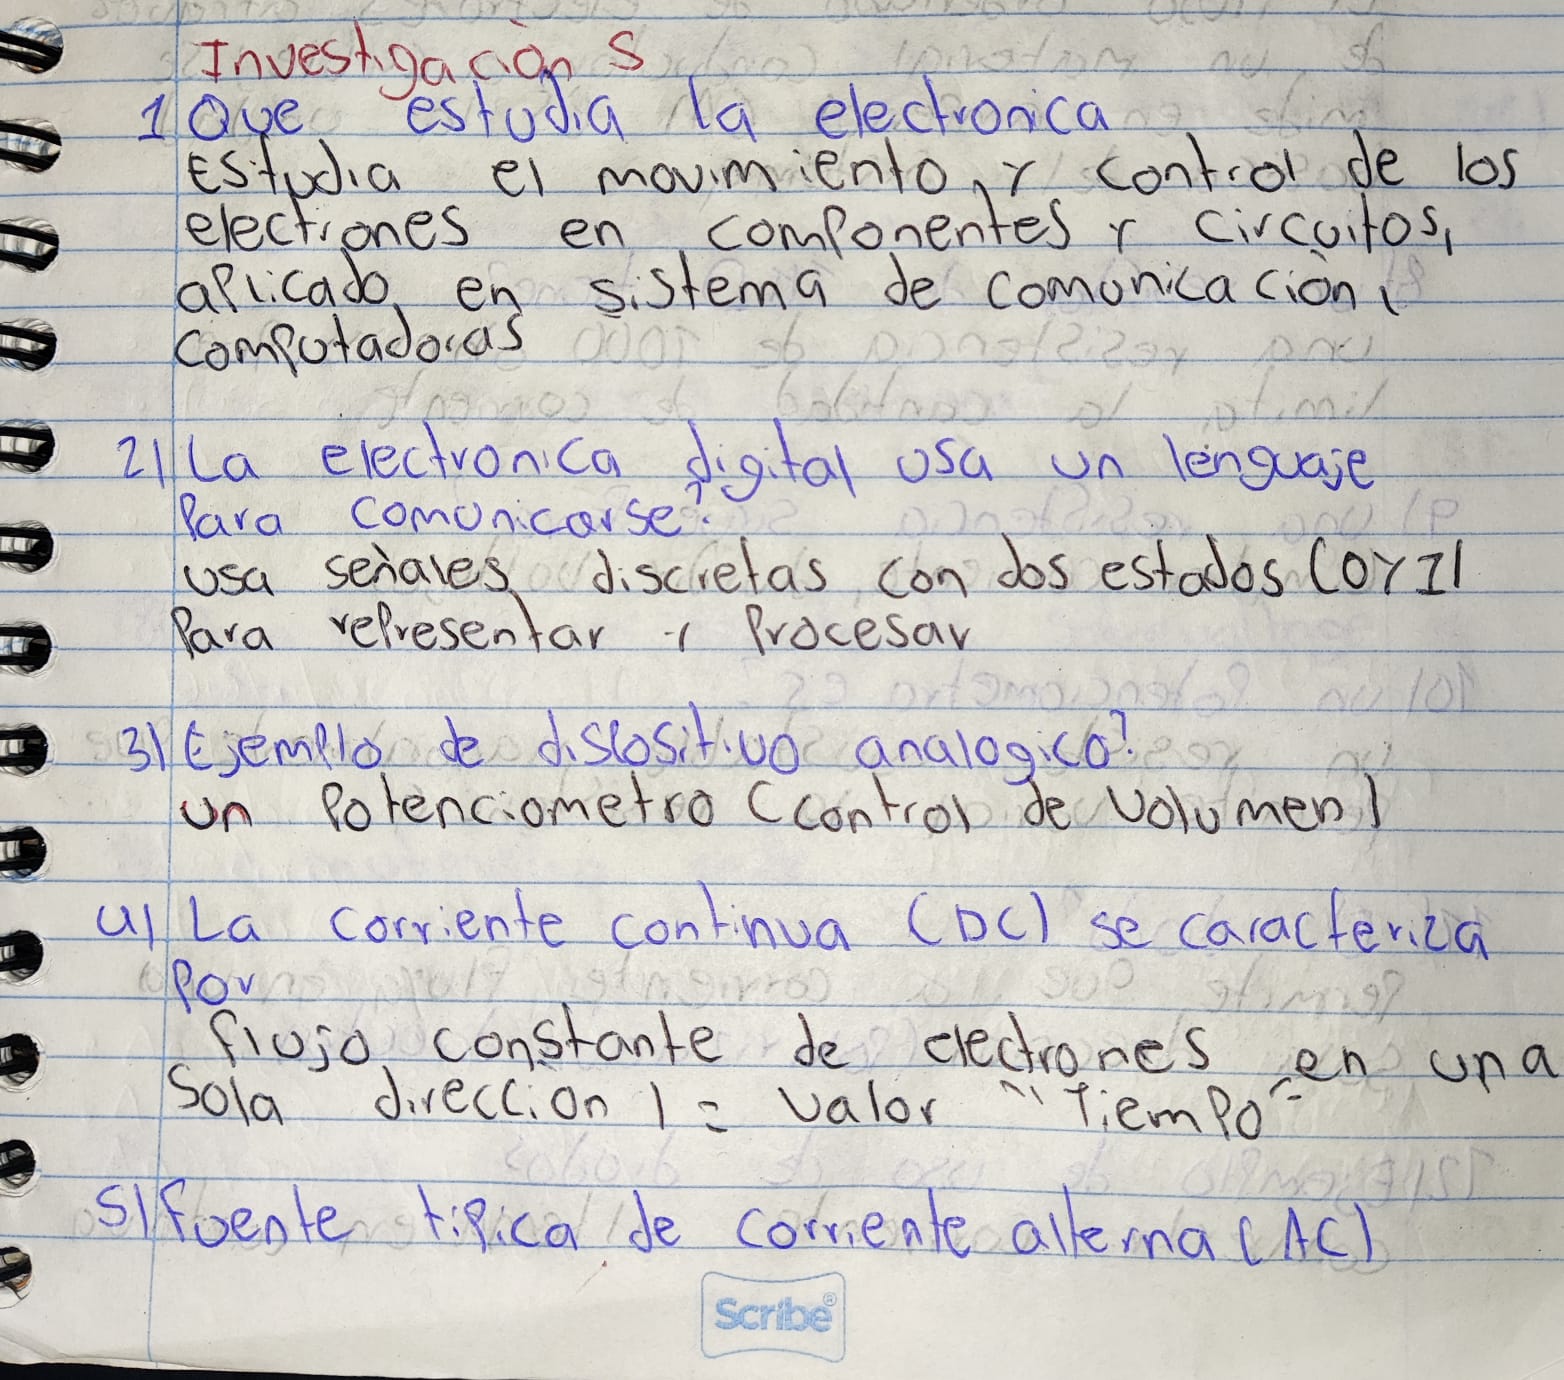 Investigaciòn S
1 Que estudia la electronica
Estudia el movimiento, y control de los
electrones en componentes y circuitos,
aplicado en sistema de comunicaciòn,
computadoras
2) La electronica digital usa un lenguaje
Para comunicarse?
usa señales discretas con dos estados (0 y 1)
Para representar y Procesar
3) Ejemplo de dispositivo analogico?
un Potenciometro (control de volumen)
4) La corriente continua (DC) se caracteriza
Por
flujo constante de electrones en una
Sola direccion ) = valor "Tiempo"
5) fuente tipica de corriente alterna (AC)
Scribe®